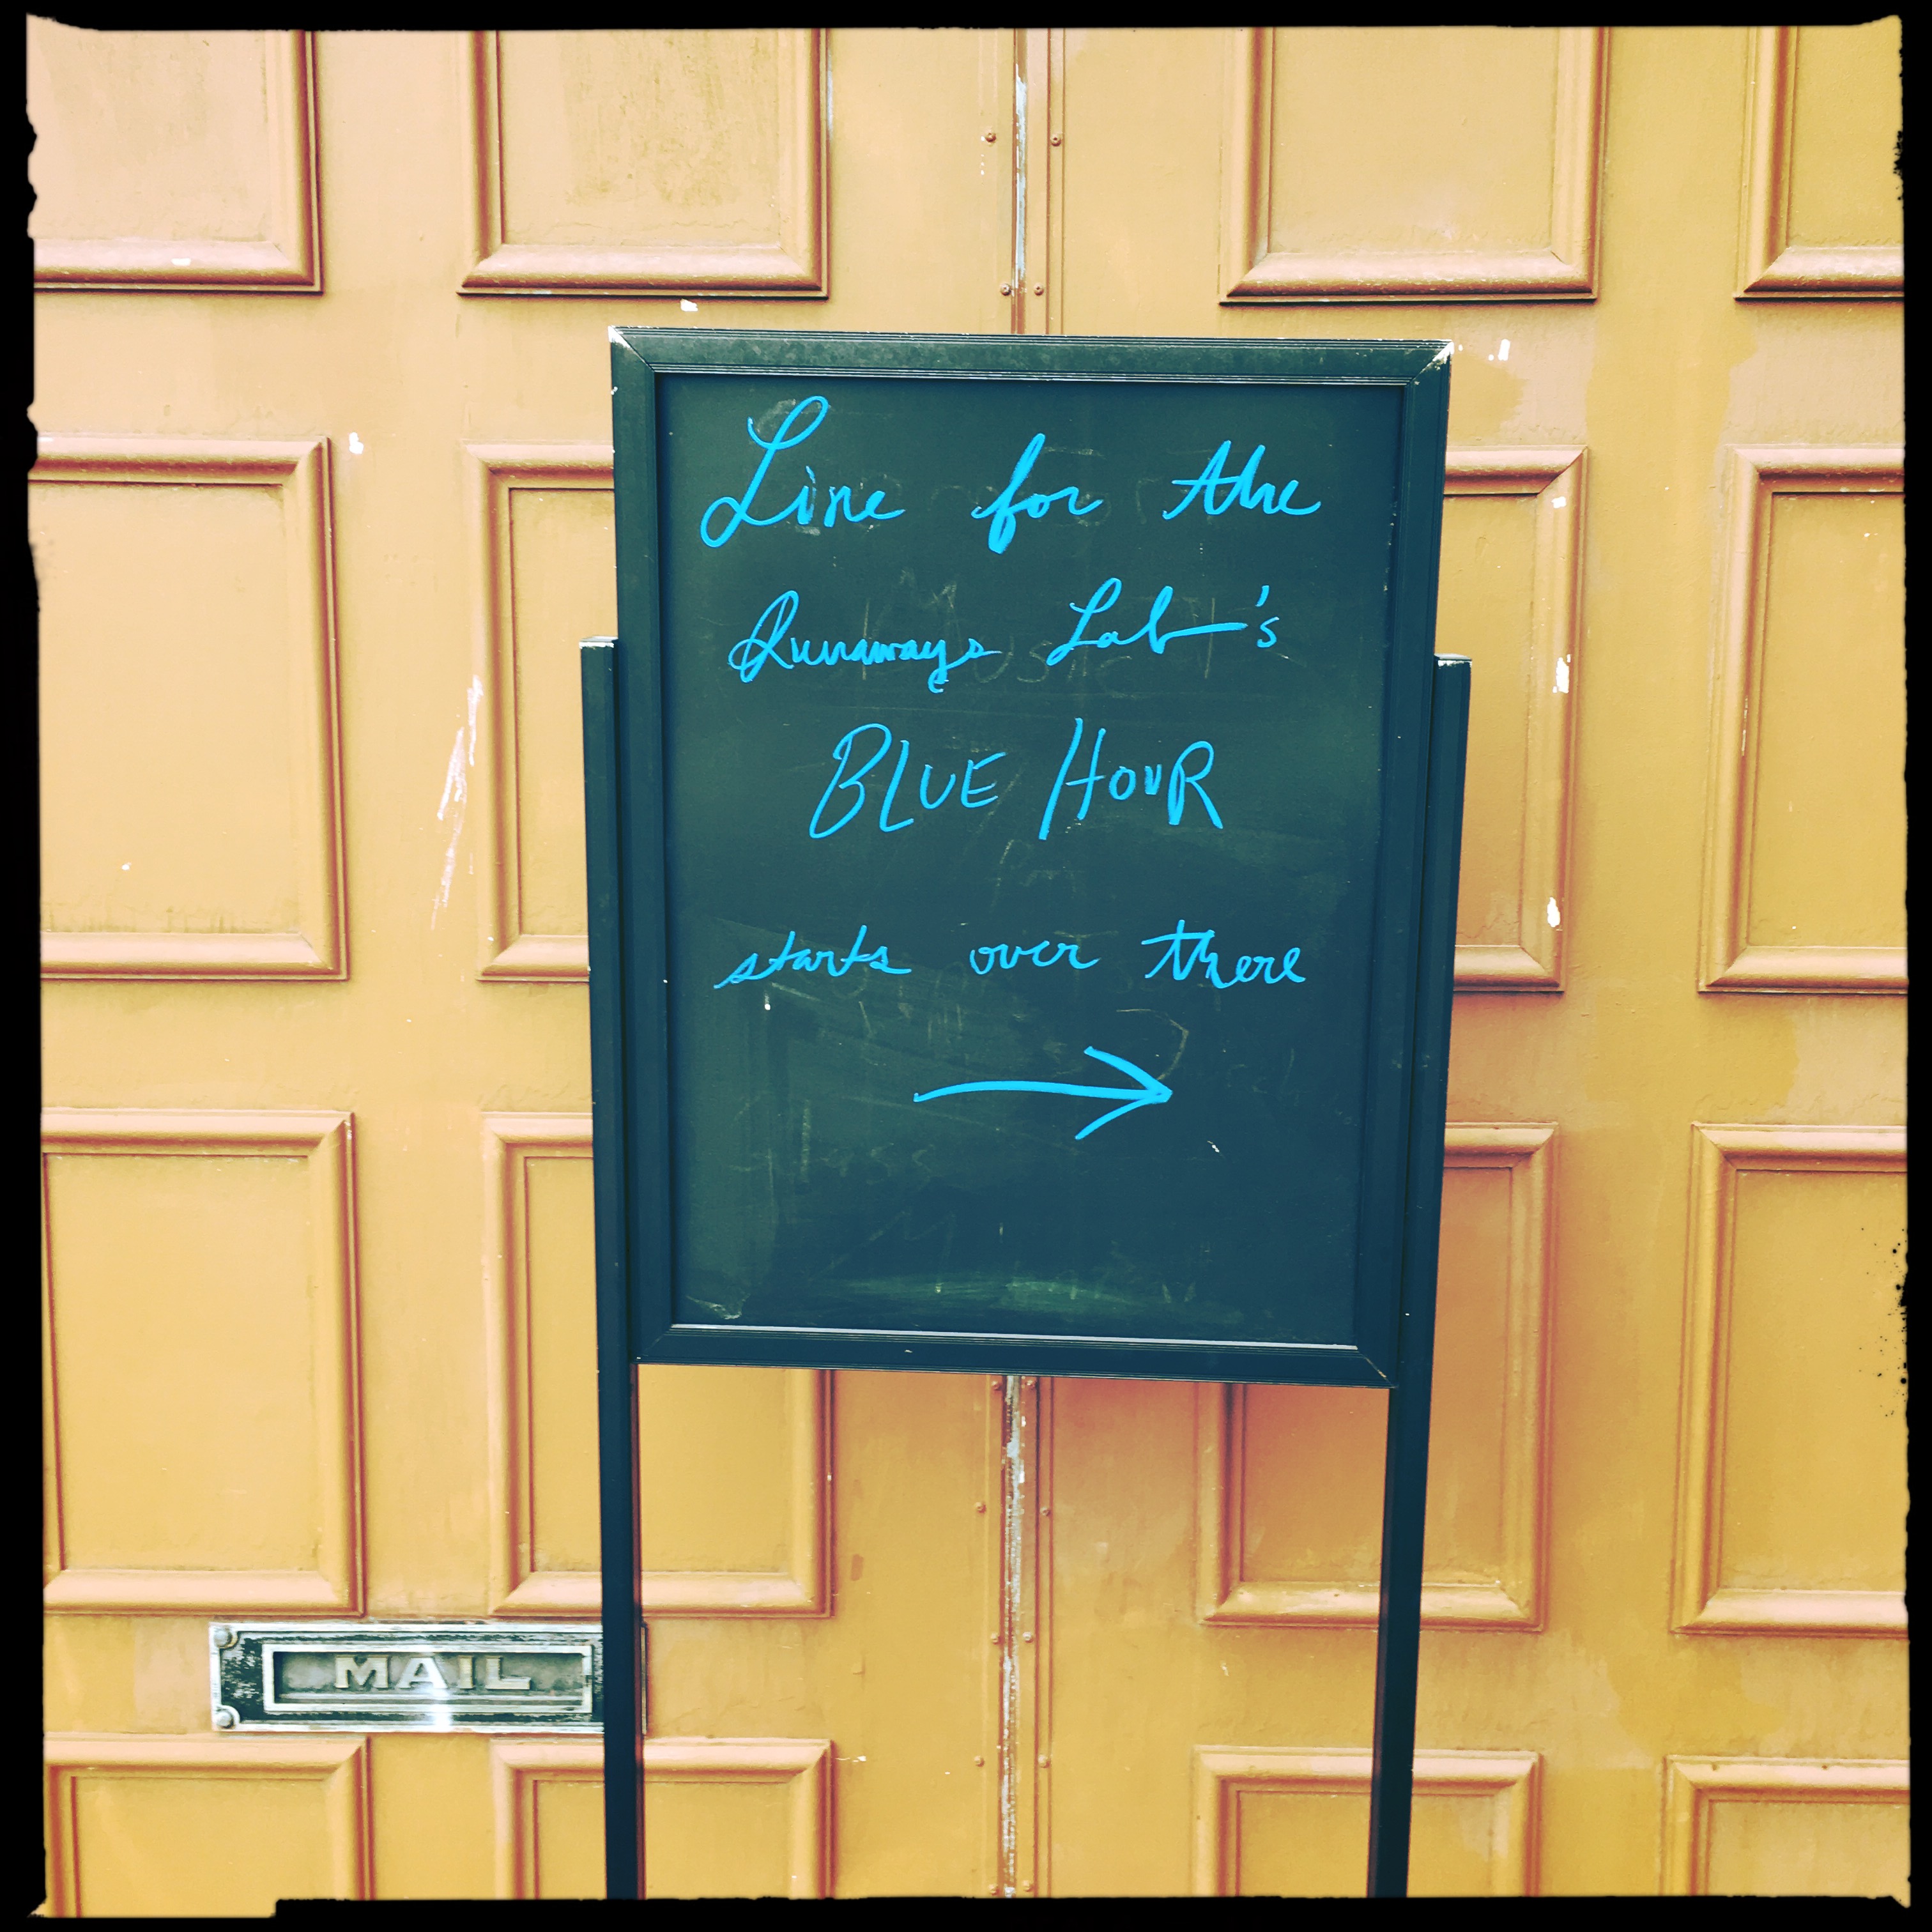 Line for the
Runaways Lab's
BLUE HOUR
starts over there
MAIL